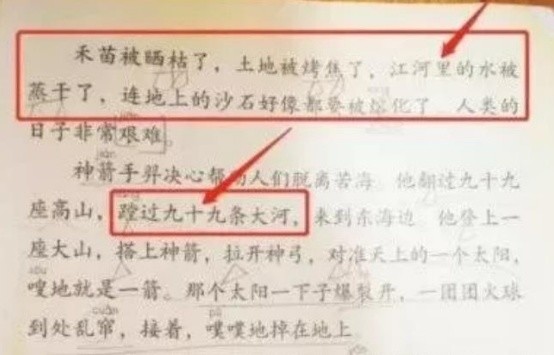 禾苗被晒枯了，土地被烤焦了，江河里的水被
蒸干了，连地上的沙石好像都要被熔化了。人类的
日子非常艰难。
神箭手羿决心帮助人们脱离苦海。他翻过九十九
座高山，蹚过九十九条大河，来到东海边。他登上一
座大山，搭上神箭，拉开神弓，对准天上的一个太阳，
嗖地就是一箭。那个太阳一下子爆裂开，一团团火球
到处乱窜，接着，噗噗地掉在地上。